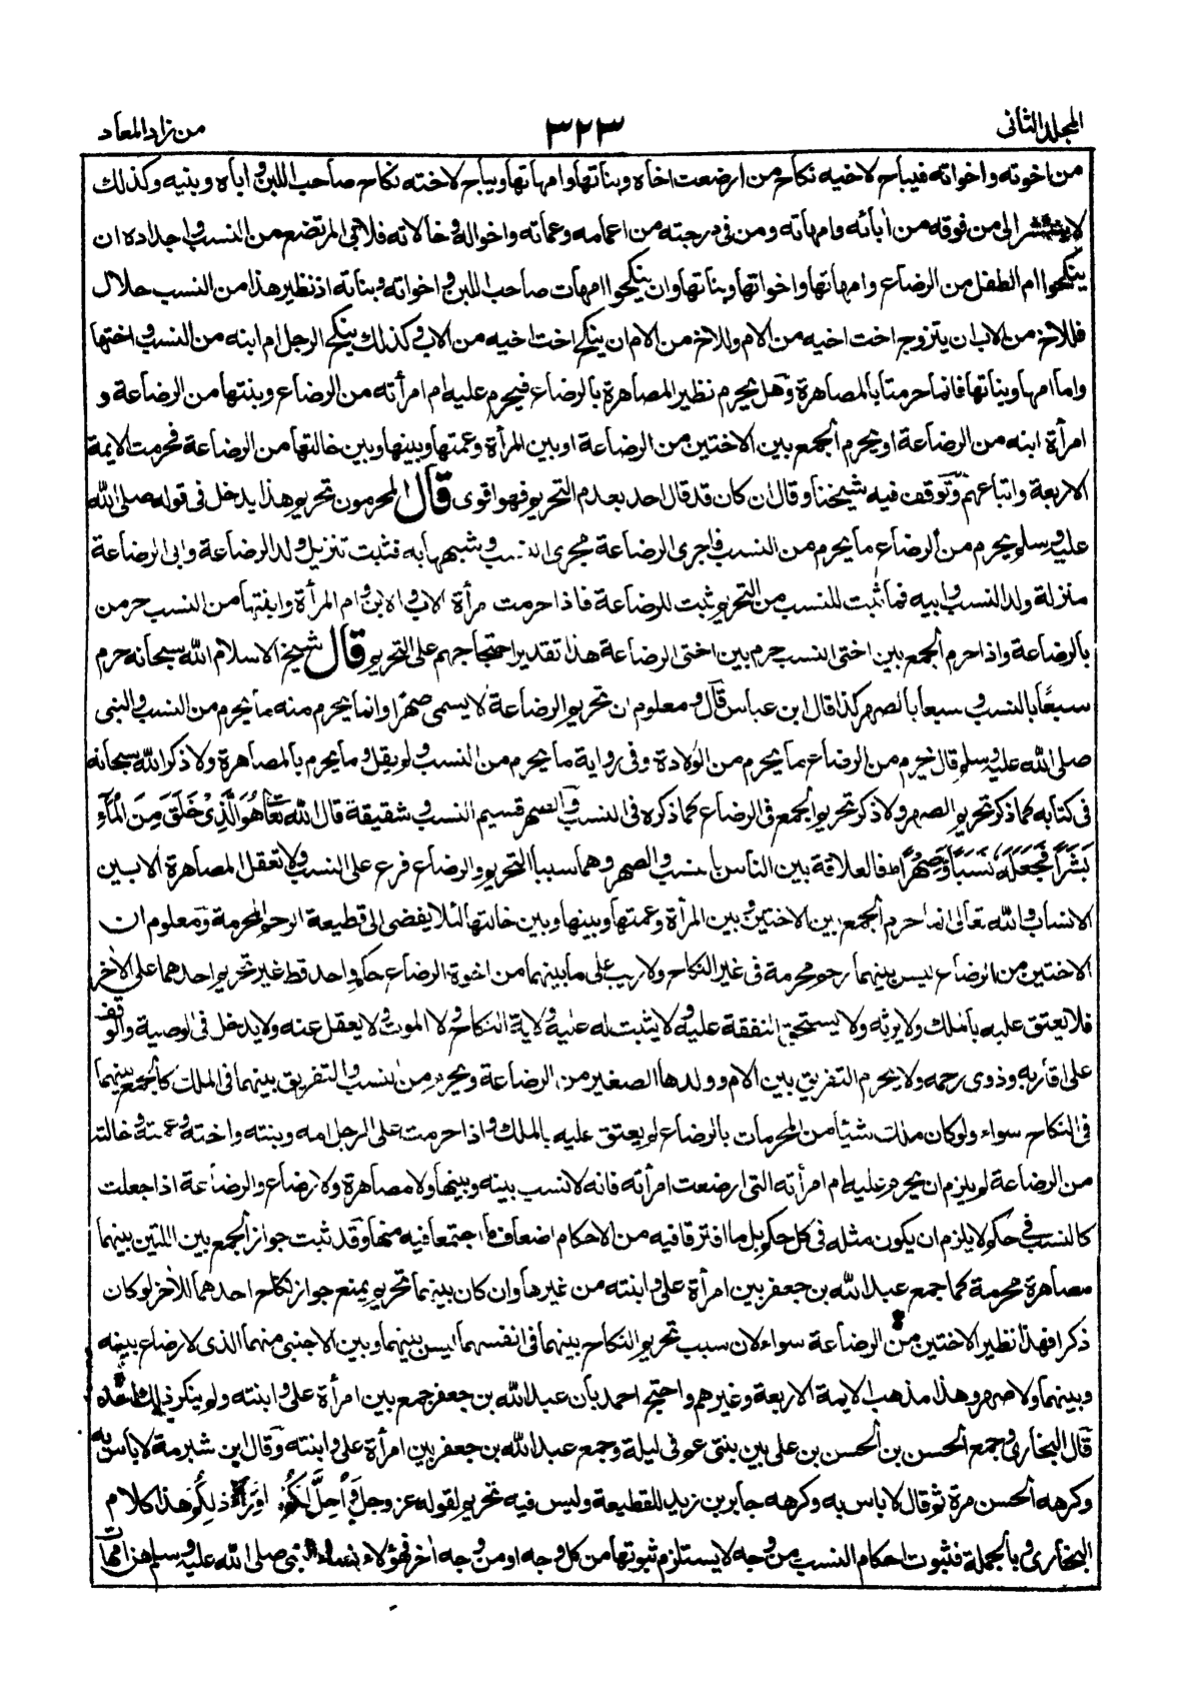 المجلد الثانى ٣٢٣ من زاد المعاد
من اخوته واخواته فيباح لاخيه نكاح من ارضعت اخاه وبناتها وامهاتها ويباح لاخته نكاح صاحب اللبن و اباه وبنيه وكذلك
لا ينتشر الى من فوقه من أبائه وامهاته ومن فى درجته من اعمامه وعماته واخواله و خالاته فلابي المرتضع من النسب و اجداده ان
ينكحوا ام الطفل من الرضاع وامهاتها واخواتها وبناتها وان ينكحوا امهات صاحب اللبن و اخواته وبناته اذ نظير هذا من النسب حلال
فللاخ من الاب ان يتزوج اخت اخيه من الام وللاخ من الام ان ينكح اخت اخيه من الاب و كذلك ينكح الرجل ام ابنه من النسب و اختها
واما امها وبناتها فانما حرمتا بالمصاهرة وهل يحرم نظير المصاهرة بالرضاع فيحرم عليه ام امرأته من الرضاع وبنتها من الرضاعة و
امرأة ابنه من الرضاعة او يحرم الجمع بين الاختين من الرضاعة او بين المرأة وعمتها وبينها وبين خالتها من الرضاعة فحرمت الايمة
الاربعة واتباعهم وتوقف فيه شيخنا وقال ان كان قد قال احد بعدم التحريم فهو اقوى قال المحرمون تحريم هذا يدخل فى قوله صلى الله
عليه وسلم يحرم من الرضاع ما يحرم من النسب فاجرى الرضاعة مجرى النسب و شبهها به فثبت تنزيل ولد الرضاعة وابى الرضاعة
منزلة ولد النسب و ابيه فما ثبت للنسب من التحريم ثبت للرضاعة فاذا حرمت مرأة الاب و الابن و ام المرأة وابنتها من النسب حرمن
بالرضاعة واذا حرم الجمع بين اختى النسب حرم بين اختى الرضاعة هذا تقدير احتجاجهم على التحريم قال شيخ الاسلام الله سبحانه حرم
سبعًا بالنسب و سبعا بالصهر كذا قال ابن عباس قال و معلوم ان تحريم الرضاعة لا يسمى صهرًا وانما يحرم منه ما يحرم من النسب و النبى
صلى الله عليه وسلم قال يحرم من الرضاع ما يحرم من الولادة وفى رواية ما يحرم من النسب و لم يقل و ما يحرم بالمصاهرة ولا ذكر الله سبحانه
فى كتابه كما ذكر تحريم الصهر ولا ذكر تحريم الجمع فى الرضاع كما ذكره فى النسب و الصهر قسيم النسب و شقيقة قال الله تعالى هُوَ الَّذِىْ خَلَقَ مِنَ الْمَآءِ
بَشَرًا فَجَعَلَهٗ نَسَبًا وَّصِهْرًا ط فالعلاقة بين الناس بالنسب و الصهر وهما سببا التحريم والرضاع فرع على النسب و لا تعقل المصاهرة الا بين
الانساب و الله تعالى انما حرم الجمع بين الاختين و بين المرأة وعمتها وبينها وبين خالتها لئلا يفضى الى قطيعة الرحم المحرمة ومعلوم ان
الاختين من الرضاع ليس بينهما رحم محرمة فى غير النكاح ولا ريب على ما بينهما من اخوة الرضاع حكم واحد قط غير تحريم احدهما على الأخر
فلا يعتق عليه بالملك ولا يرثه ولا يستحق النفقة عليه و لا يثبت له عليه ولاية النكاح و لا الموت و لا يعقل عنه ولا يدخل فى الوصية والوقف
على اقاربه وذوى رحمه ولا يحرم التفريق بين الام وولدها الصغير من الرضاعة ويحرم من النسب و التفريق بينهما فى الملك كالجمع بينهما
فى النكاح سواء ولو كان ملك شيئا من المحرمات بالرضاع لم يعتق عليه بالملك و اذا حرمت على الرجل امه وبنته واخته و عمته و خالته
من الرضاعة لم يلزم ان يحرم عليه ام امرأته التى ارضعت امرأته فانه لا نسب بينه وبينها ولا مصاهرة ولا رضاع والرضاعة اذا جعلت
كالنسب فى حكم لا يلزم ان يكون مثله فى كل حكم بل ما افترقا فيه من الاحكام اضعاف ما اجتمعا فيه منها وقد ثبت جواز الجمع بين اللتين بينهما
مصاهرة محرمة كما جمع عبد الله بن جعفر بين امرأة على و ابنته من غيرها وان كان بينهما تحريم يمنع جواز نكاح احدهما للأخر لو كان
ذكرا فهذا نظير الاختين من الرضاعة سواء لان سبب تحريم النكاح بينهما فى انفسهما ليس بينهما وبين الاجنبى منهما الذى لا رضاع بينه
وبينهما ولا صهر وهذا مذهب الايمة الاربعة وغيرهم واحتج احمد بان عبد الله بن جعفر جمع بين امرأة على و ابنته ولم ينكر ذلك احد
قال البخارى و جمع الحسن بن الحسن بن على بين بنتى عم فى ليلة وجمع عبد الله بن جعفر بين امرأة على و ابنته وقال ابن شبرمة لا باس به
وكرهه الحسن مرة ثم قال لا باس به وكرهه جابر بن زيد للقطيعة وليس فيه تحريم لقوله عز وجل وَاُحِلَّ لَكُمْ مَّا وَرَآءَ ذٰلِكُمْ هذا كلام
البخارى و بالجملة فثبوت احكام النسب من وجه لا يستلزم ثبوتها من كل وجه او من وجه أخر فهؤلاء نساء النبى صلى الله عليه وسلم هن امهات